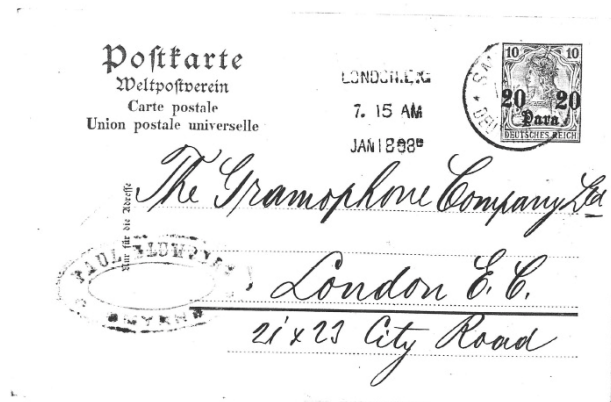 Postkarte
Weltpostverein
Carte postale
Union postale universelle
7. 15 AM
JAN 18 08
10 10
20 20
Para
DEUTSCHES REICH
Nur für die Adresse
The Gramophone Company Ltd
London E. C.
21 x 23 City Road
PAUL